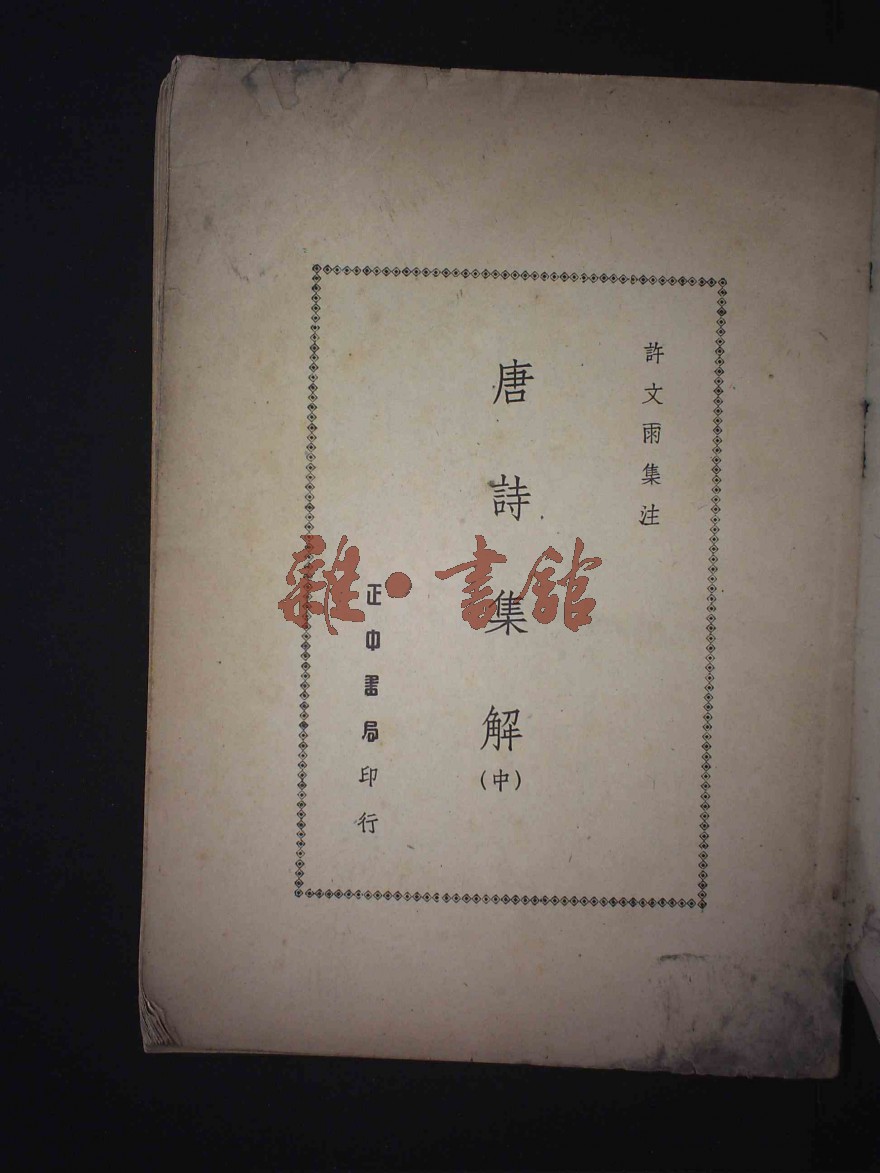 許文雨集注
唐詩集解
(中)
正中書局印行
雜·書館